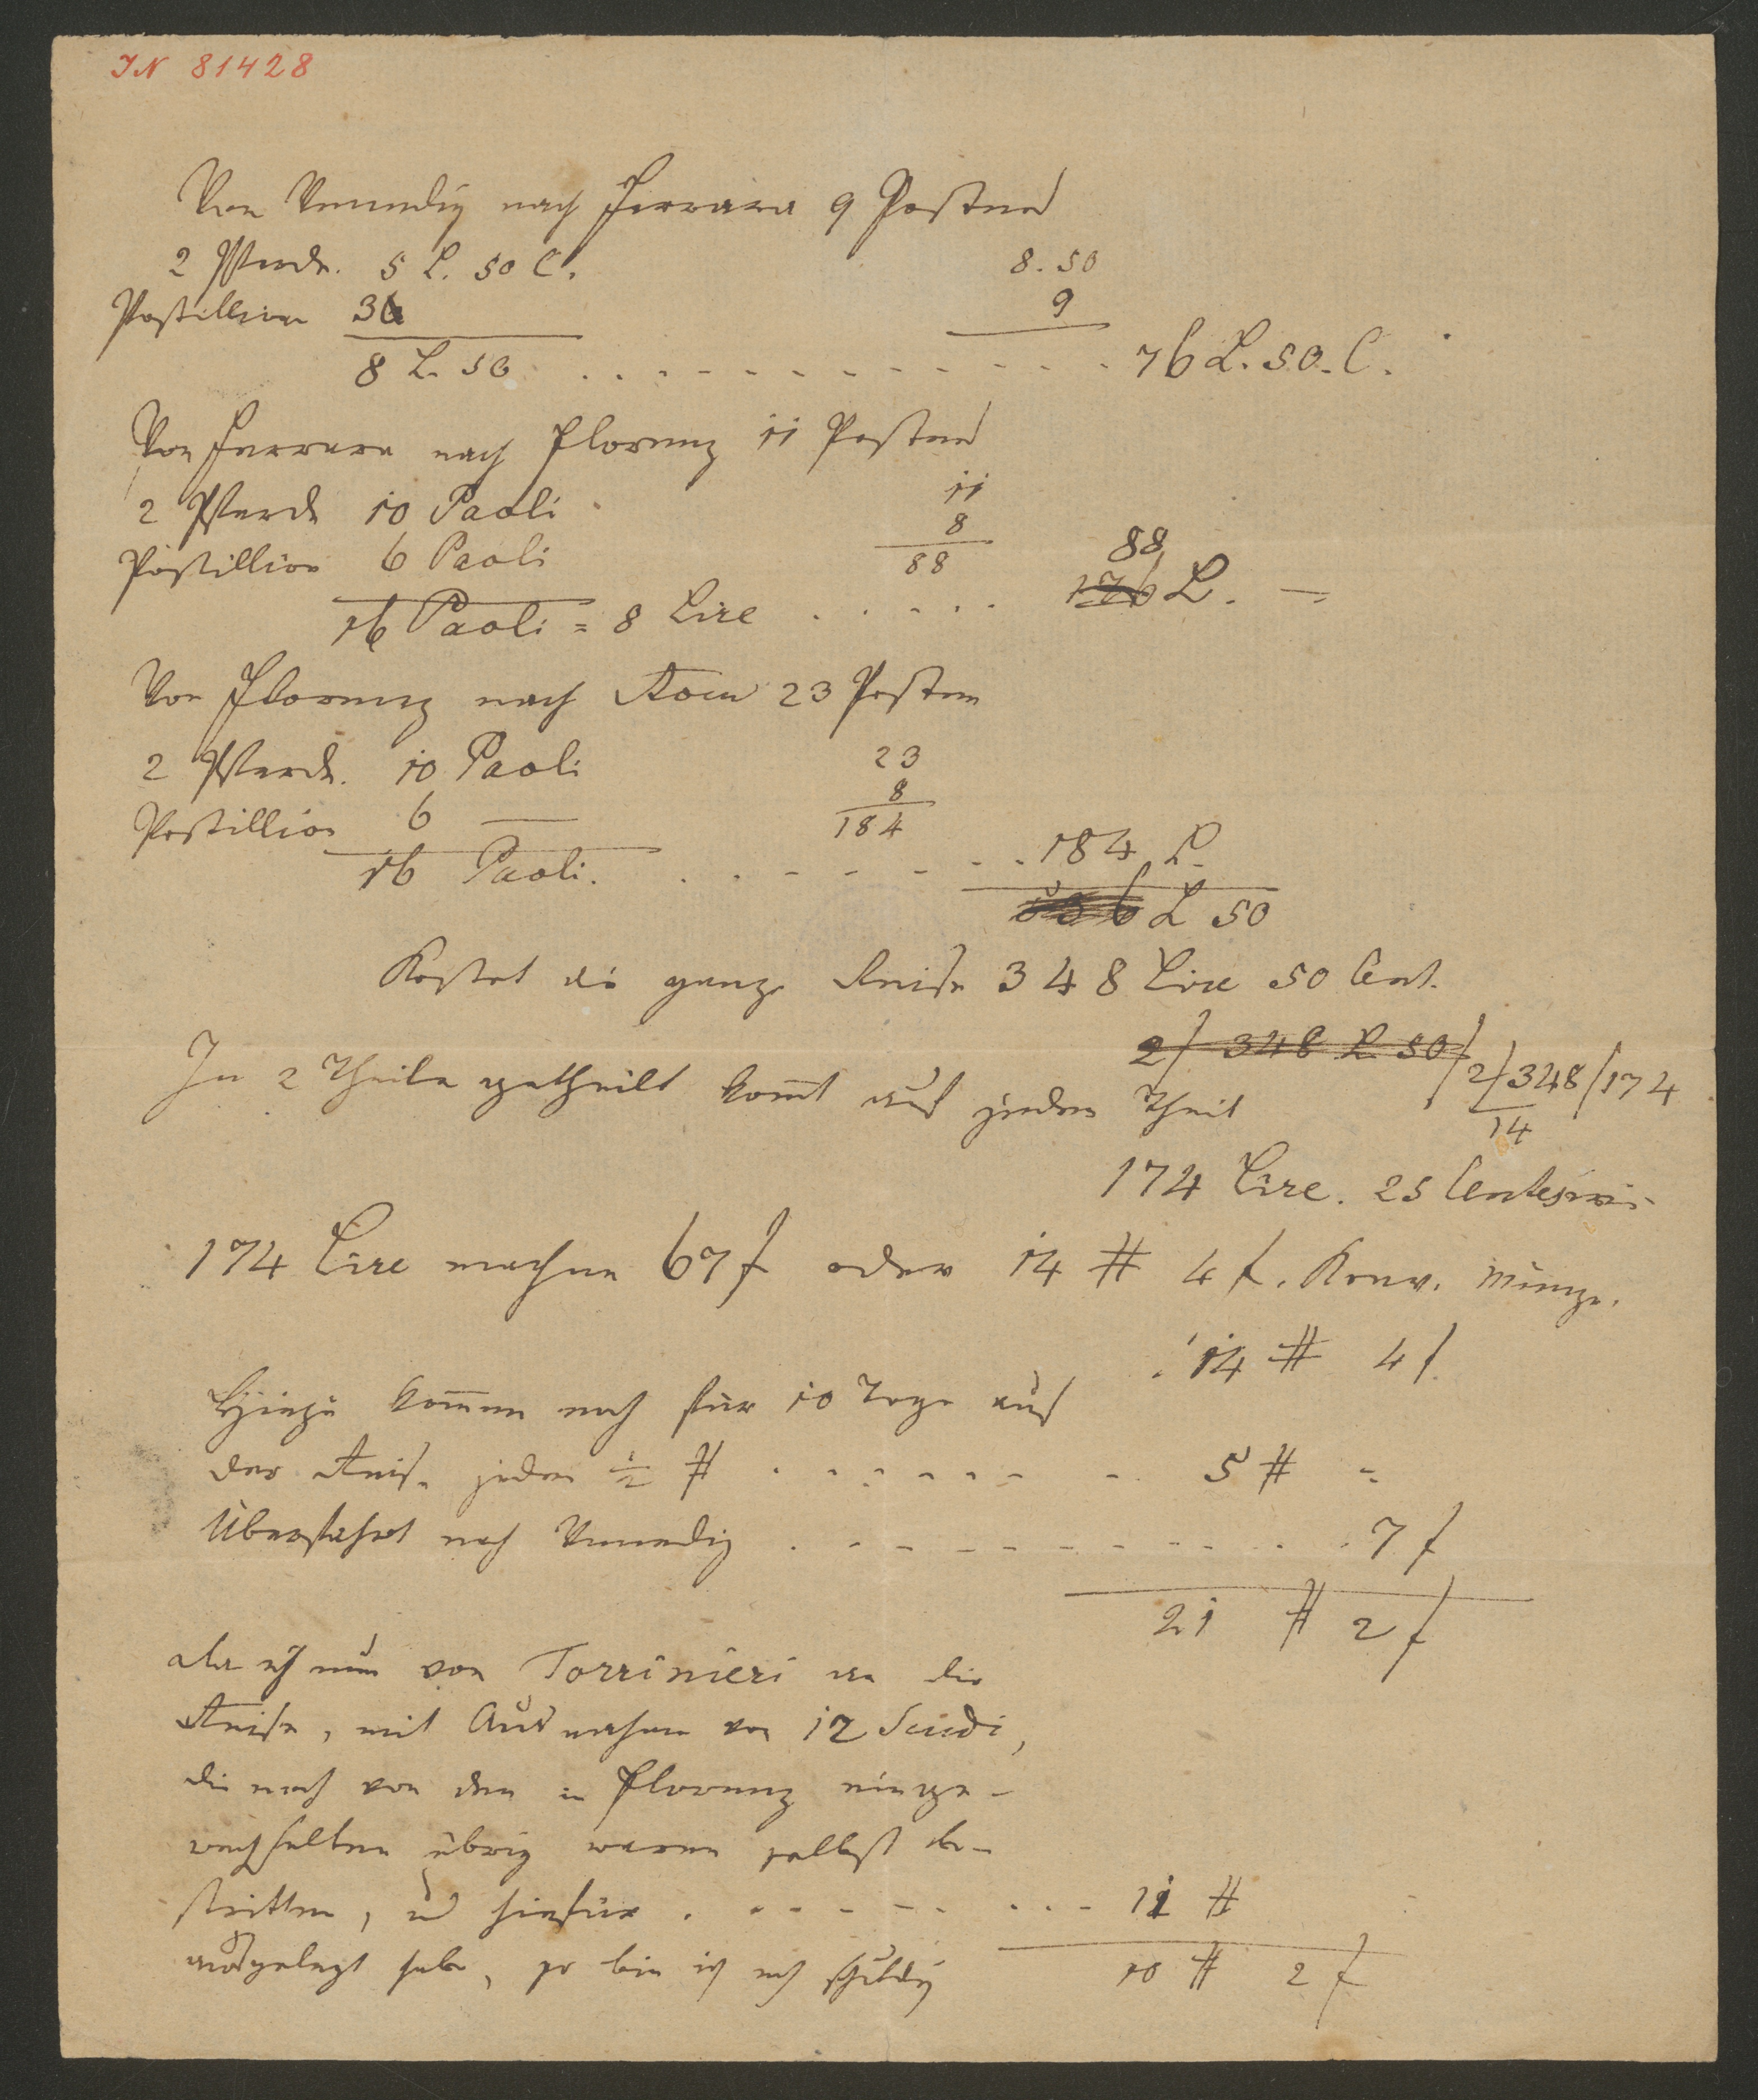 IN 81428
Von Venedig nach Ferrara 9 Posten
2 Pferde. 5 L. 50 C. 8.50
Postillion 3 9
8 L. 50 . . . . . . . . . . . . . 76 L. 50. C.
Von Ferrara nach Florenz 11 Posten
2 Pferde 10 Paoli 11
Postillion 6 Paoli 8
88 88
16 Paoli = 8 Lire . . . . . 176 L. —
Von Florenz nach Rom 23 Posten
2 Pferde. 10 Paoli 23
Postillion 6 — 8
184
16 Paoli. . . . . . . . 184 L.
L 50
Kostet die ganze Reise 348 Lire 50 Cent.
2/ 348 L 50/
In 2 Theile getheilt kommt auf jeden Theil 2/348/174
14
174 Lire. 25 Centesimi
174 Lire machen 67 f oder 14 # 4 f. Konv. Münze.
14 # 4 f.
Hiezu kommen noch für 10 Tage auf
der Reise jeden ½ # . . . . . . . . 5 # –
Überfahrt nach Venedig . . . . . . . . . . . . 7 f
21 # 2 f
da ich nun von Torrinieri an die
Reise, mit Ausnahme von 12 Scudi,
die noch von den in Florenz einge-
wechselten übrig waren selbst be-
stritten, und hiefür . . . . . . . . . 11 #
ausgelegt habe, so bin ich noch schuldig 10 # 2 f